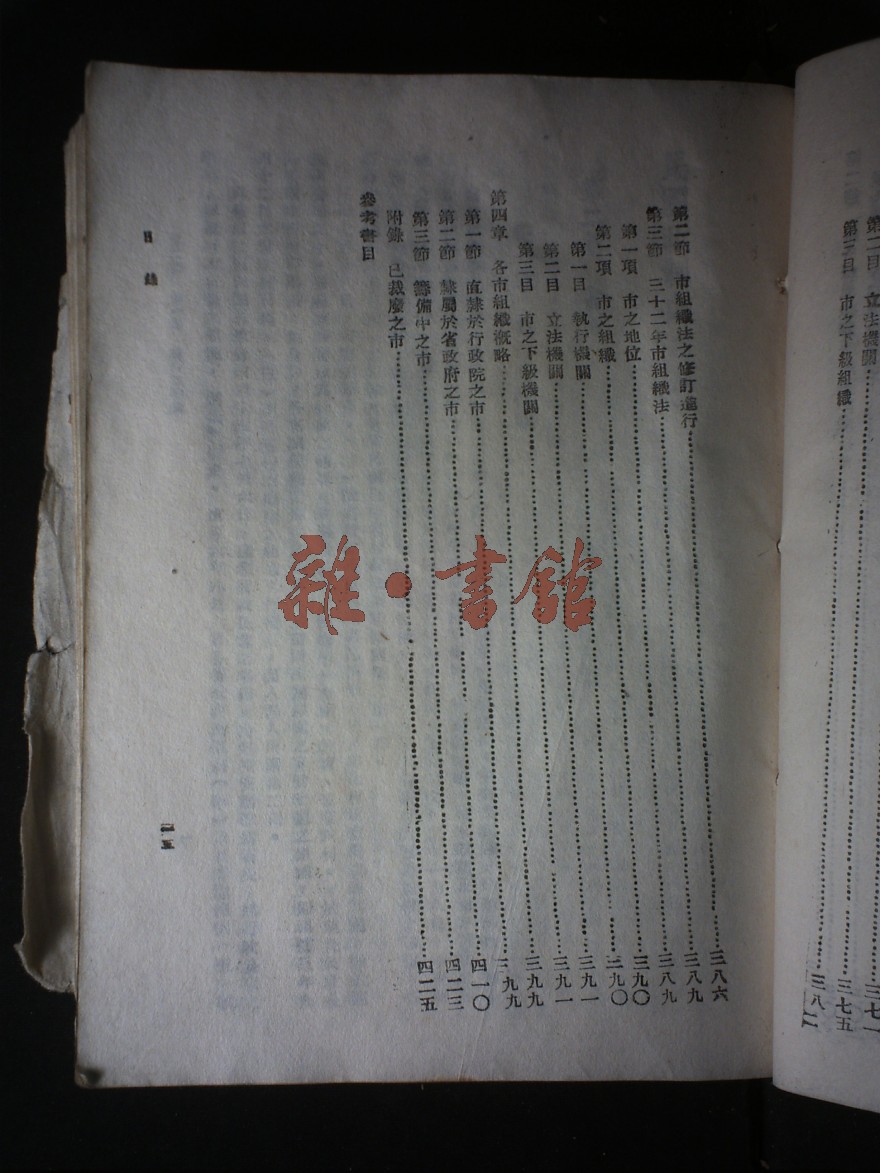 第二目 立法機關……三七一
第三目 市之下級組織……三七五
三八二
第二節 市組織法之修訂進行……三八六
第三節 三十二年市組織法……三八九
第一項 市之地位……三八九
第二項 市之組織……三九〇
第一目 執行機關……三九〇
第二目 立法機關……三九一
第三目 市之下級機關……三九一
第四章 各市組織概略……三九九
第一節 直隸於行政院之市……三九九
第二節 隸屬於省政府之市……四一〇
第三節 籌備中之市……四二三
附錄 已裁廢之市……四二五
參考書目
目錄
一五
雜·書館